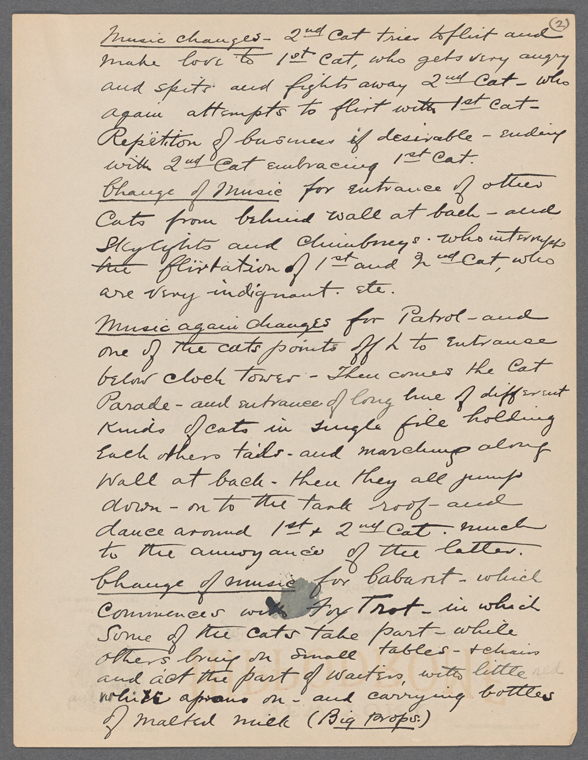 (2)
Music changes - 2nd Cat tries to flirt and
make love to 1st Cat, who gets very angry
and spits and fights away 2nd Cat - who
again attempts to flirt with 1st Cat -
Repetition of business if desirable - ending
with 2nd Cat embracing 1st Cat.
Change of Music for entrance of other
Cats from behind wall at back - and
Skylights and Chimneys. who interrupt
the flirtation of 1st and 2nd Cat, who
are very indignant. etc.
Music again changes for Patrol - and
one of the cats points off L to Entrance
below clock tower - Then comes the Cat
Parade - and entrance of long line of different
Kinds of cats in single file holding
Each others tails - and marching along
Wall at back - then they all jump
down - on to the tank roof - and
dance around 1st + 2nd Cat. much
to the annoyance of the latter.
Change of music for Cabaret - which
Commences with Fox Trot - in which
Some of the cats take part - while
others bring on small tables - + chairs
and act the part of waiters, with little
white aprons on - and carrying bottles
of malted milk (Big props.)